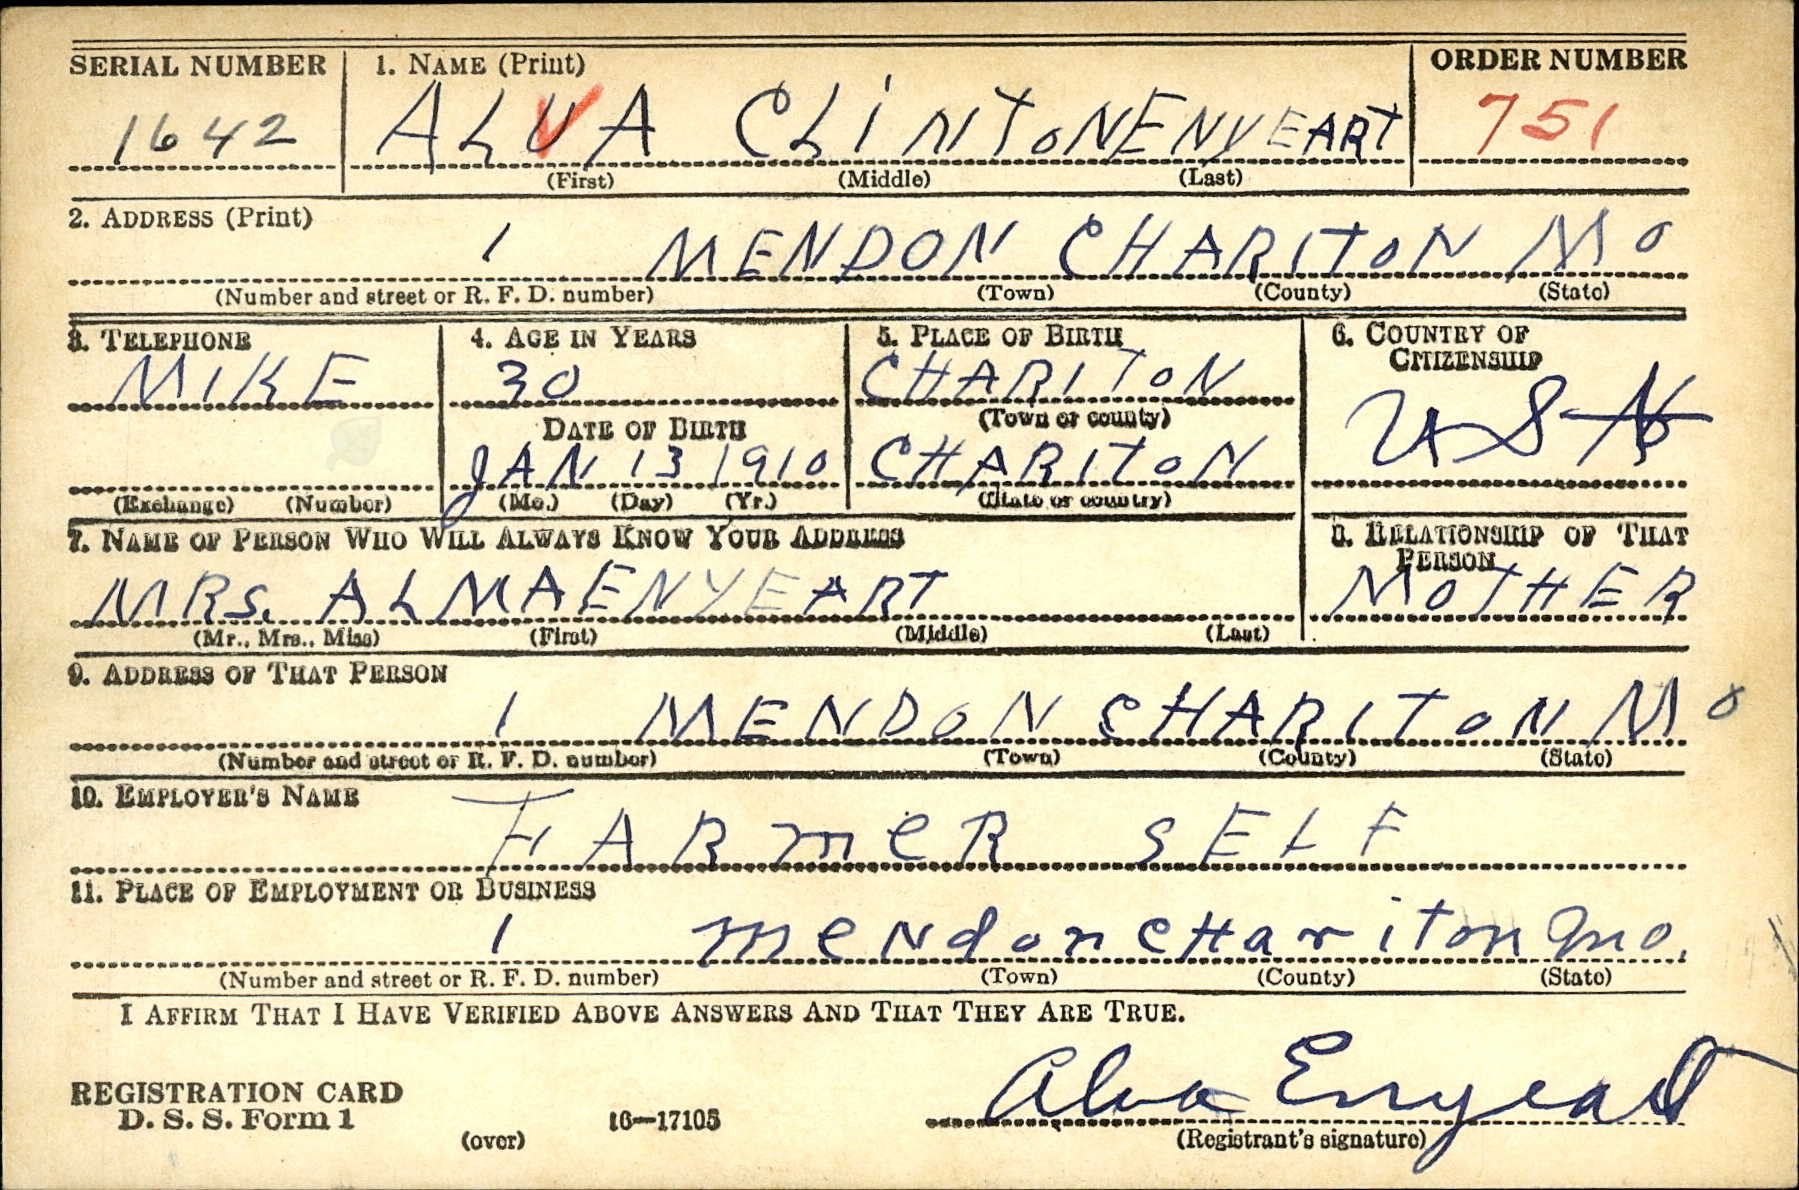 SERIAL NUMBER 1. NAME (Print) ORDER NUMBER
1642 ALVA CLINTON ENYEART 751
(First) (Middle) (Last)
2. ADDRESS (Print)
1 MENDON CHARITON MO
(Number and street or R. F. D. number) (Town) (County) (State)
3. TELEPHONE 4. AGE IN YEARS 5. PLACE OF BIRTH 6. COUNTRY OF CITIZENSHIP
MIKE 30 CHARITON USA
(Town or county)
DATE OF BIRTH
JAN 13 1910 CHARITON
(Exchange) (Number) (Mo.) (Day) (Yr.) (State or country)
7. NAME OF PERSON WHO WILL ALWAYS KNOW YOUR ADDRESS 8. RELATIONSHIP OF THAT PERSON
MRS. ALMA ENYEART MOTHER
(Mr., Mrs., Miss) (First) (Middle) (Last)
9. ADDRESS OF THAT PERSON
1 MENDON CHARITON MO
(Number and street or R. F. D. number) (Town) (County) (State)
10. EMPLOYER'S NAME
FARMER SELF
11. PLACE OF EMPLOYMENT OR BUSINESS
1 mendon chariton Mo.
(Number and street or R. F. D. number) (Town) (County) (State)
I AFFIRM THAT I HAVE VERIFIED ABOVE ANSWERS AND THAT THEY ARE TRUE.
REGISTRATION CARD
D. S. S. Form 1
(over) 16—17105
Alva Enyeart
(Registrant's signature)